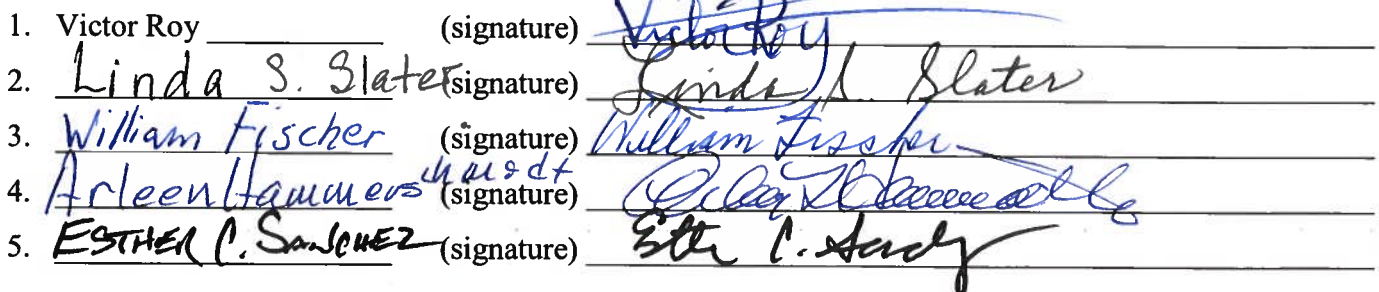 1. Victor Roy (signature) Victor Roy
2. Linda S. Slater (signature) Linda S. Slater
3. William Fischer (signature) William Fischer
4. Arleen Hammerschmidt (signature)
5. ESTHER C. SANCHEZ (signature)